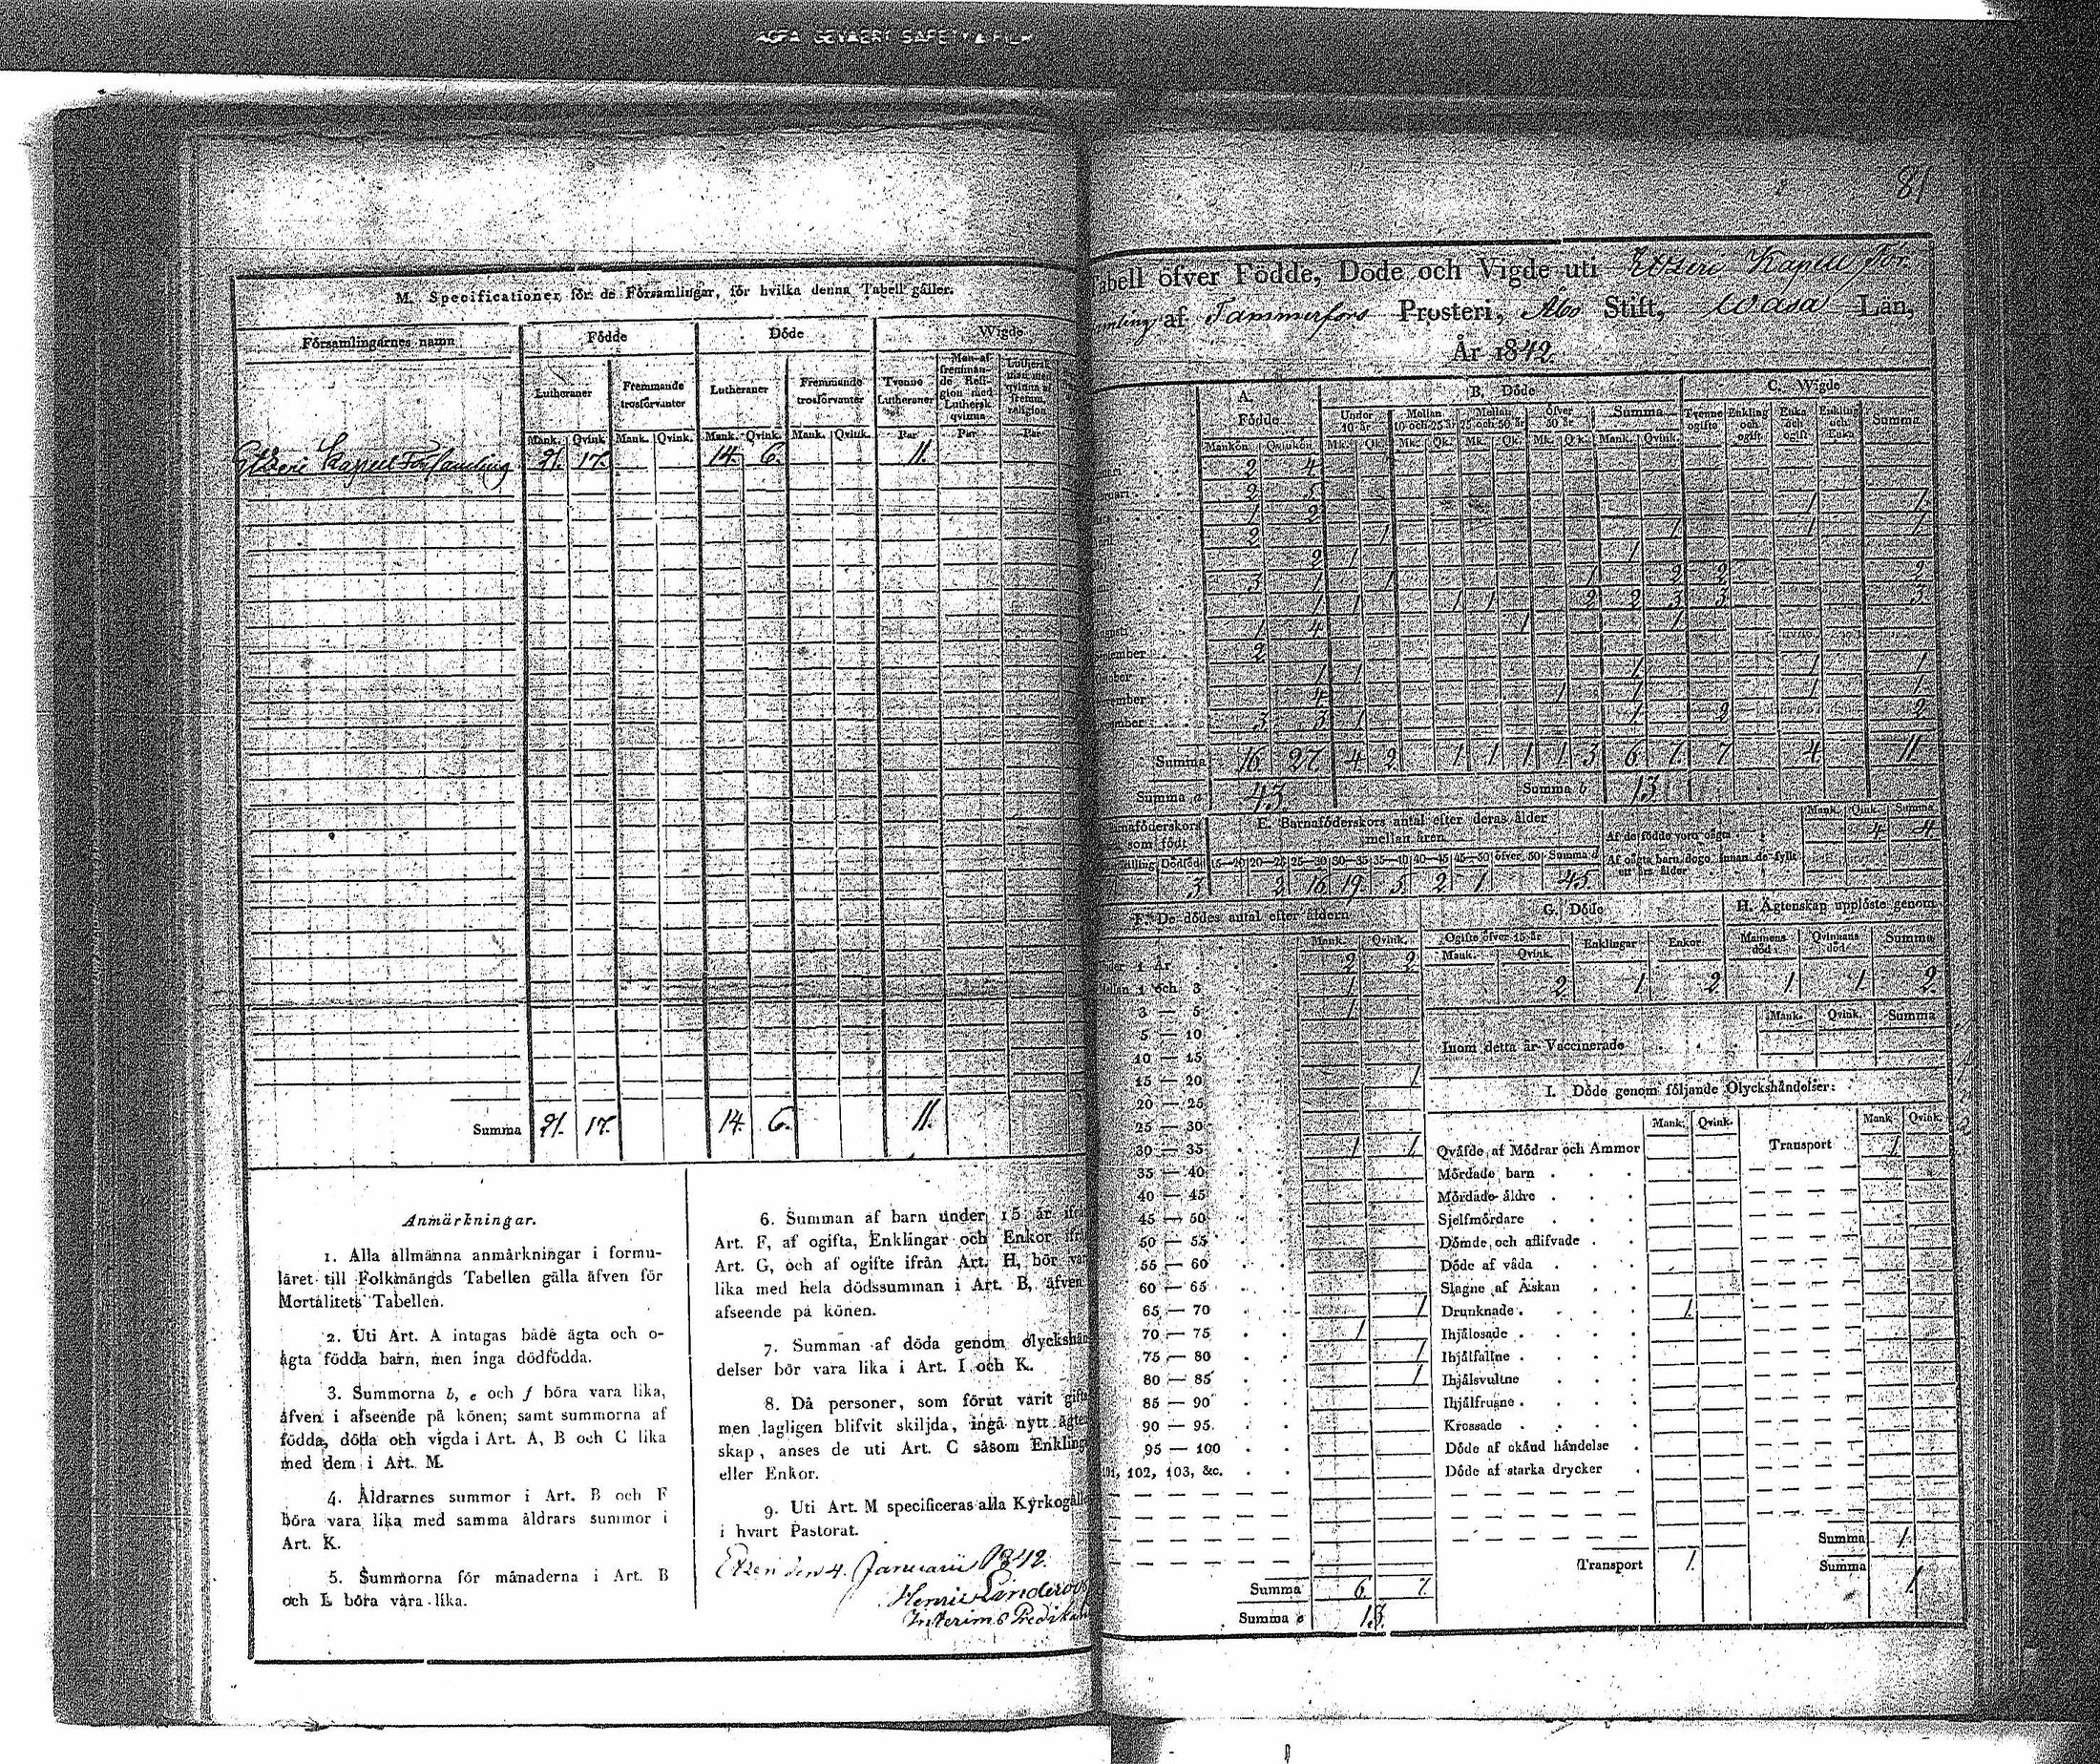 AGFA GEVAERT SAFETY FILM
M. Specificationer för de Församlingar, för hvilka denna Tabell gäller.
Församlingarnes namn
Födde
Döde
Wigde
Lutheraner
Fremmande trosförvanter
Lutheraner
Fremmande trosförvanter
Tvenne Lutheraner
Man af fremmande Religion med Luthersk qvinna
Luthersk man med qvinna af fremm. religion
Mank. Qvink. Mank. Qvink. Mank. Qvink. Mank. Qvink. Par Par Par
Etzeri Kapell Församling 21. 17. 14. 6. 11.
Summa 21. 17. 14. 6. 11.
Anmärkningar.
1. Alla allmänna anmärkningar i formu-
läret till Folkmängds Tabellen gälla äfven för
Mortalitets Tabellen.
2. Uti Art. A intagas både ägta och o-
ägta födda barn, men inga dödfödda.
3. Summorna b, e och f böra vara lika,
äfven i afseende på könen; samt summorna af
födda, döda och vigda i Art. A, B och C lika
med dem i Art. M.
4. Åldrarnes summor i Art. B och F
böra vara lika med samma åldrars summor i
Art. K.
5. Summorna för månaderna i Art. B
och L böra vara lika.
6. Summan af barn under 15 år
Art. F, af ogifta, Enklingar och Enkor
Art. G, och af ogifte ifrån Art. H, bör
lika med hela dödssumman i Art. B, äfven
afseende på könen.
7. Summan af döda genom olyckshän
delser bör vara lika i Art. I och K.
8. Då personer, som förut varit gifte
men lagligen blifvit skiljda, ingå nytt ägten
skap, anses de uti Art. C såsom Enkling
eller Enkor.
9. Uti Art. M specificeras alla Kyrkogäll
i hvart Pastorat.
Etzeri den 4. Januarii 1842.
Henric
Interims Predikan
81
Tabell öfver Födde, Döde och Vigde uti Etzeri Kapell För
samling af Tammerfors Prosteri, Åbo Stift, Wasa Län,
År 1842.
A. Födde
B. Döde
C. Wigde
Under 10 år
Mellan 10 och 25 år
Mellan 25 och 50 år
Öfver 50 år
Summa
Tvenne ogifte
Enkling och ogift
Enka och ogift
Enkling och Enka
Summa
Mankön Qvinkön Mk. Qk. Mk. Qk. Mk. Qk. Mk. Qk. Mank. Qvink.
2 4
2 5 1 1
1 2
2 1 1 1 1
2 1 1
3 1 1 1 2 2 2
1 1 1 1 2 2 3 3 3
1 4 1 1
September 2
1 1 1 1 1
4 1 1 1 1
3 3 1 1 2 2
Summa 16 27 4 2 1 1 1 1 3 6 7 7 4 11
Summa a 43 Summa b 13
Barnaföderskors som födt
E. Barnaföderskors antal efter deras ålder mellan åren
Tvilling Dödfödt 15—20 20—25 25—30 30—35 35—40 40—45 45—50 öfver 50 Summa d
3 2 16 19 5 2 1 45
Mank. Qvink. Summa
Af de födde voro oägta 4 4
Af oägta barn dogo innan de fyllt ett års ålder
F. De dödes antal efter åldern
Mank. Qvink.
Under 1 år 2 2
Mellan 1 och 3 1
3 — 5 1
5 — 10
10 — 15
15 — 20 1
20 — 25
25 — 30
30 — 35 1 1
35 — 40
40 — 45
45 — 50
50 — 55
55 — 60
60 — 65
65 — 70 1
70 — 75 1
75 — 80 1
80 — 85 1
85 — 90
90 — 95
95 — 100
101, 102, 103, &c.
Summa 6 7
Summa e 13.
G. Döde
Ogifte öfver 15 år
Enklingar
Enkor
Mank. Qvink.
2 1 2
H. Ägtenskap upplöste genom
Mannens död
Qvinnans död
Summa
1 1 2
Mank. Qvink. Summa
Inom detta år Vaccinerade
I. Döde genom följande Olyckshändelser:
Mank. Qvink. Mank. Qvink.
Qväfde af Mödrar och Ammor
Mördade barn
Mördade äldre
Sjelfmördare
Dömde och aflifvade
Döde af våda
Slagne af Åskan
Drunknade 1.
Ihjälosade
Ihjälfallne
Ihjälsvultne
Ihjälfrusne
Krossade
Döde af okänd händelse
Döde af starka drycker
Transport 1.
Transport 1.
Summa 1.
Summa 1.